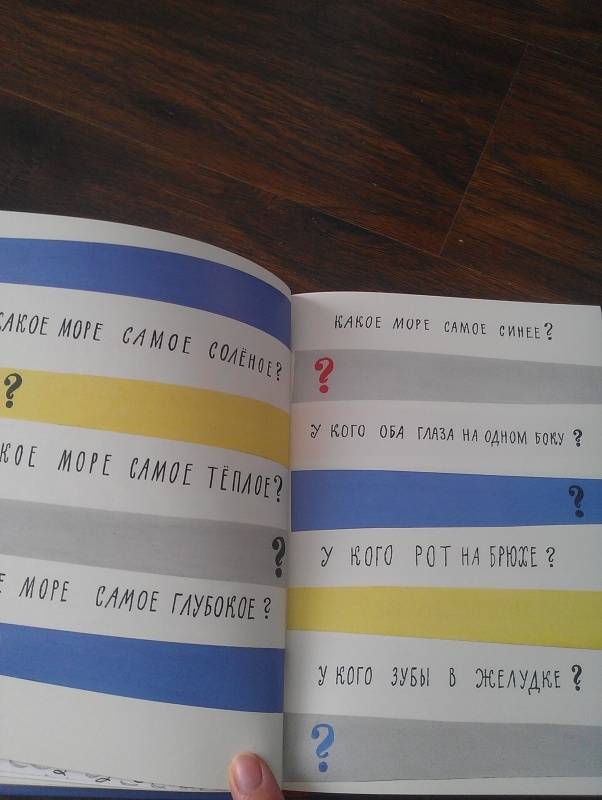 КАКОЕ МОРЕ САМОЕ СОЛЁНОЕ?
?
МОРЕ САМОЕ ТЁПЛОЕ?
?
МОРЕ САМОЕ ГЛУБОКОЕ?
КАКОЕ МОРЕ САМОЕ СИНЕЕ?
?
У КОГО ОБА ГЛАЗА НА ОДНОМ БОКУ?
?
У КОГО РОТ НА БРЮХЕ?
У КОГО ЗУБЫ В ЖЕЛУДКЕ?
?